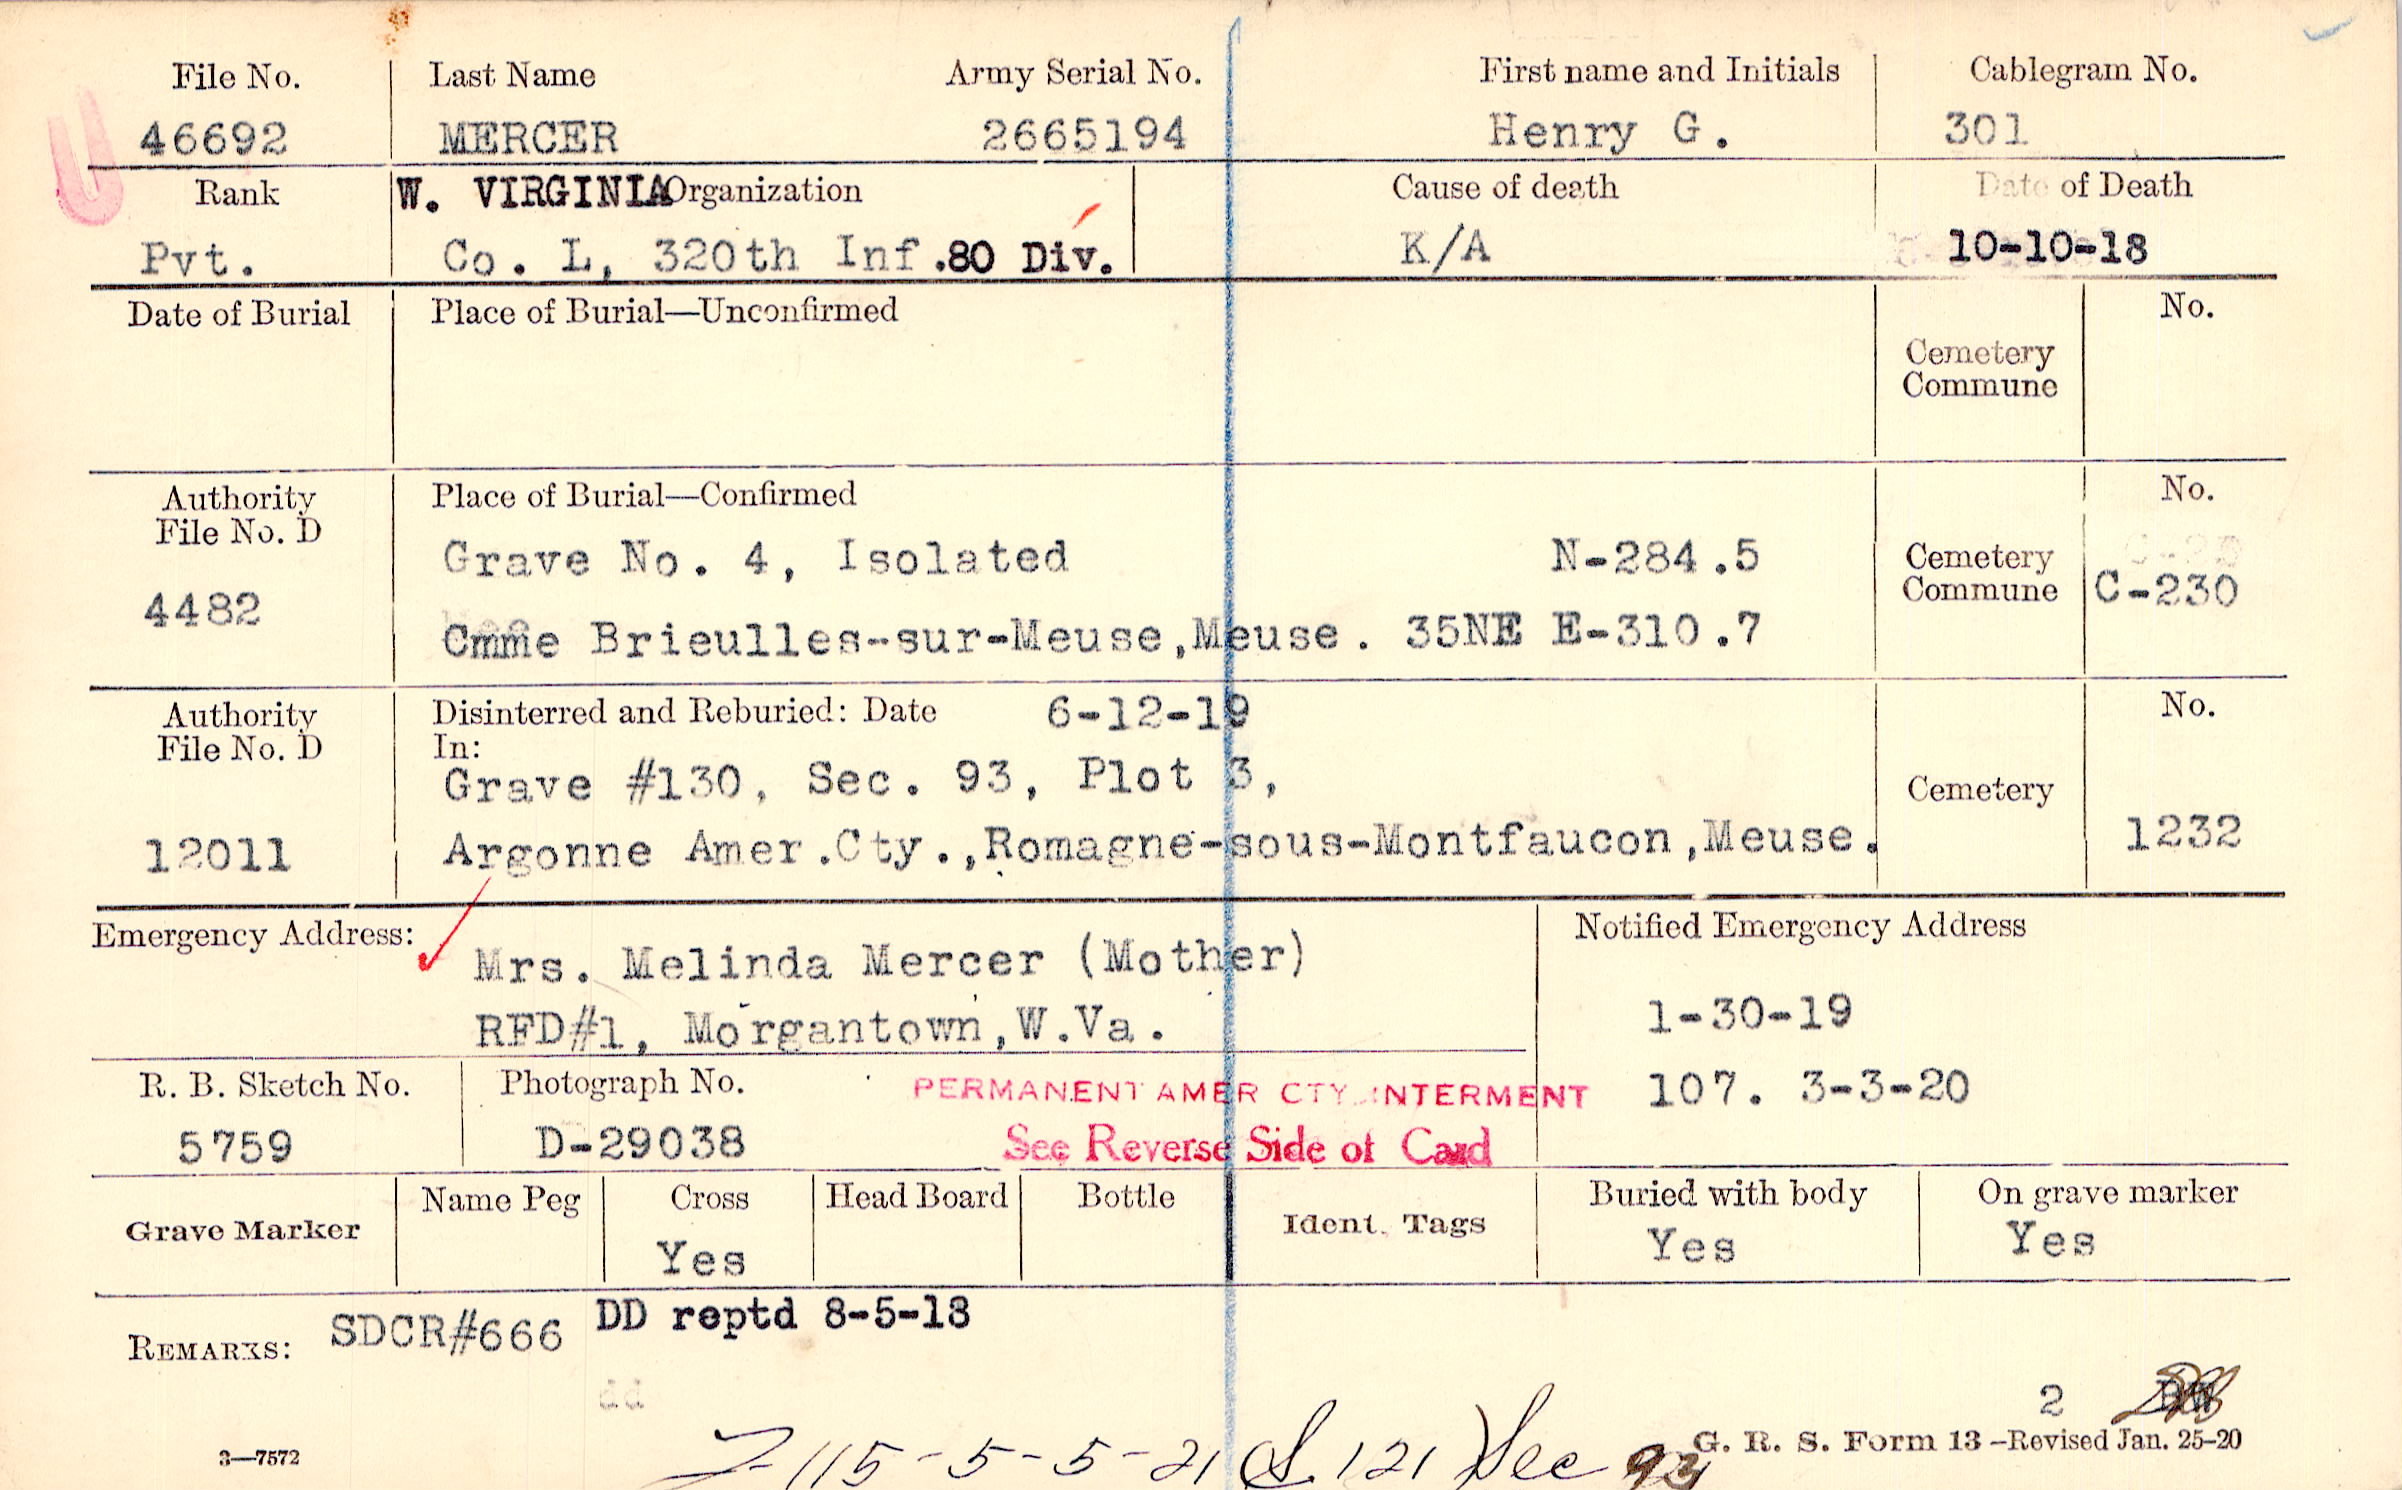 File No. Last Name Army Serial No. First name and Initials Cablegram No.
46692 MERCER 2665194 Henry G. 301
Rank W. VIRGINIA Organization Cause of death Date of Death
Pvt. Co. L, 320th Inf.80 Div. K/A 10-10-18
Date of Burial Place of Burial—Unconfirmed No.
Cemetery
Commune
Authority Place of Burial—Confirmed No.
File No. D
Grave No. 4, Isolated N-284.5 Cemetery
4482 Commune C-230
Cmme Brieulles-sur-Meuse,Meuse. 35NE E-310.7
Authority Disinterred and Reburied: Date 6-12-19 No.
File No. D In:
Grave #130, Sec. 93, Plot 3, Cemetery
12011 Argonne Amer.Cty.,Romagne-sous-Montfaucon,Meuse. 1232
Emergency Address: Notified Emergency Address
Mrs. Melinda Mercer (Mother)
1-30-19
RFD#1, Morgantown,W.Va.
R. B. Sketch No. Photograph No. PERMANENT AMER CTY INTERMENT 107. 3-3-20
5759 D-29038 See Reverse Side of Card
Name Peg Cross Head Board Bottle Buried with body On grave marker
Grave Marker Ident. Tags
Yes Yes Yes
REMARKS: SDCR#666 DD reptd 8-5-18
dd
2
3—7572 115-5-5-21 S. 121 Sec 93 G. R. S. Form 13—Revised Jan. 25-20